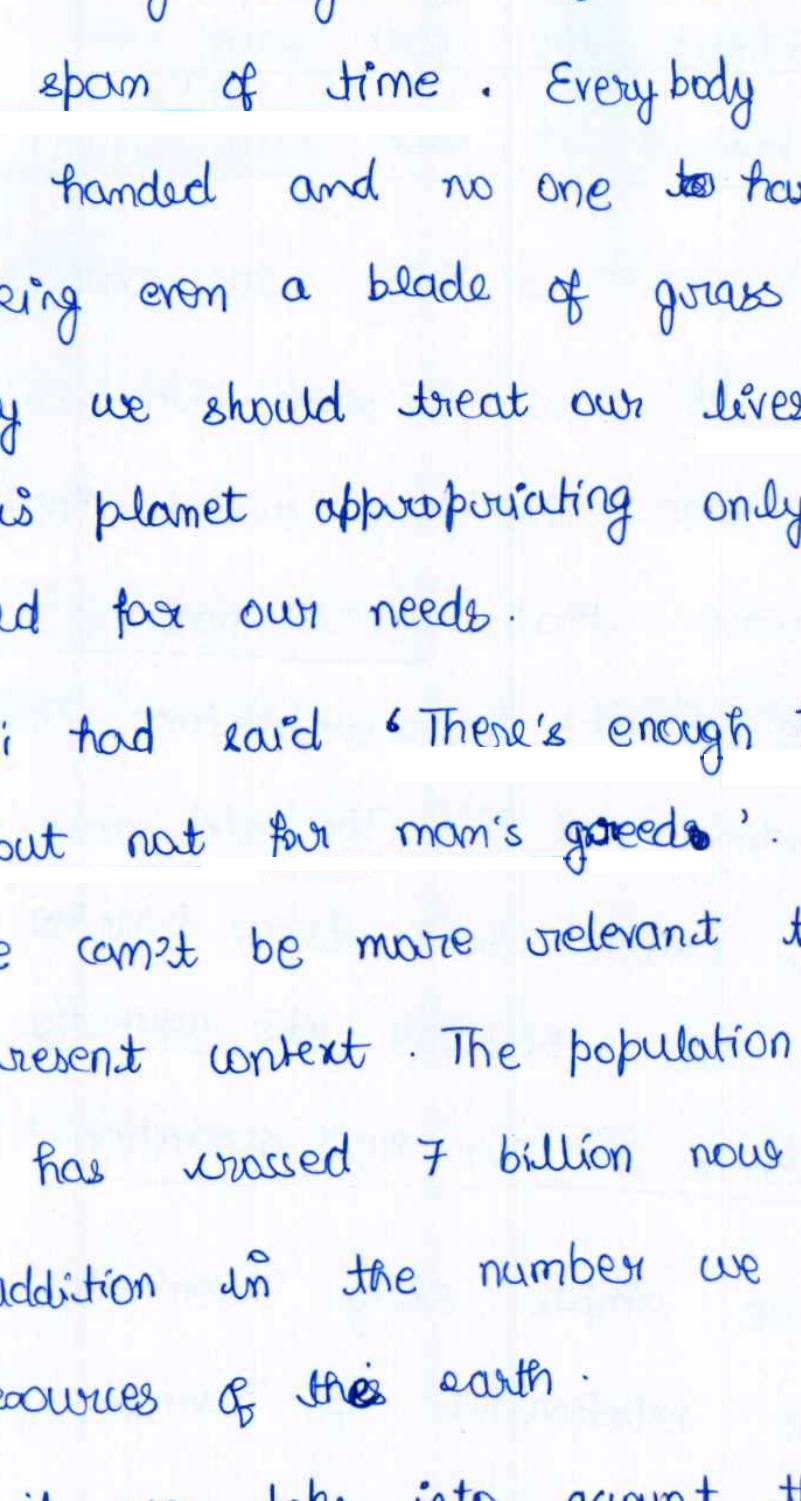 span of time. Everybody
handed and no one
even a blade of grass
we should treat our lives
planet appropriating only
for our needs.
had said 'There's enough
but not for man's greeds'.
can't be more relevant
context. The population
has crossed 7 billion now
addition in the number we
of this earth.
into